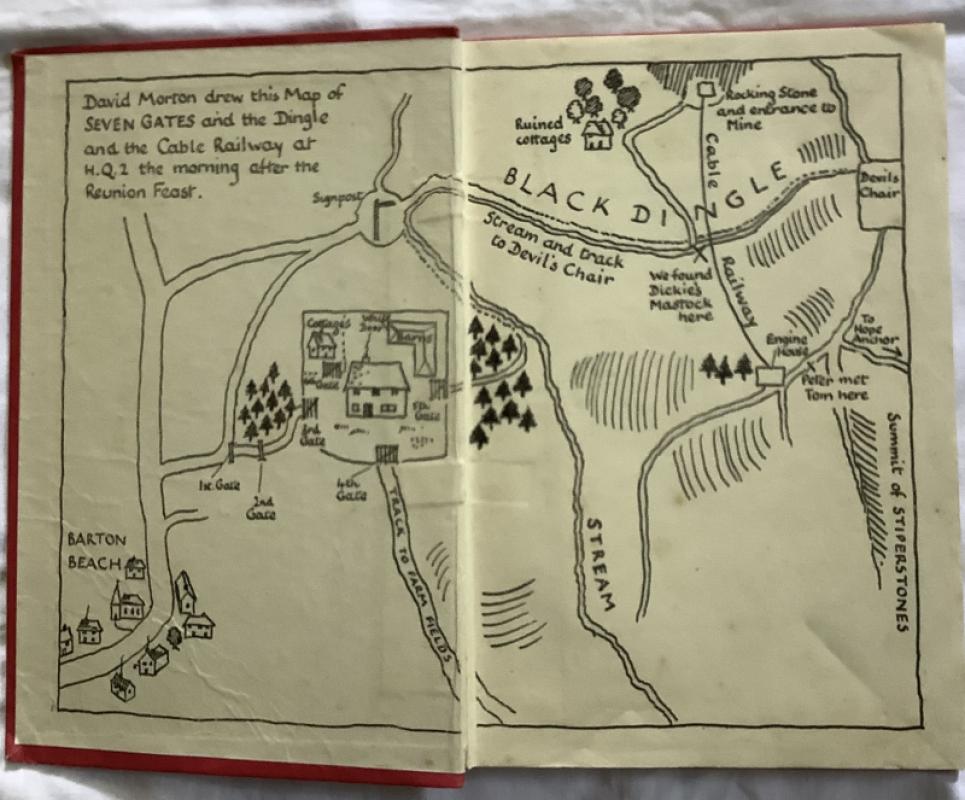 David Morton drew this Map of
SEVEN GATES and the Dingle
and the Cable Railway at
H.Q.2 the morning after the
Reunion Feast.
Signpost
Cottages
White
Door
Barns
Gate
3rd
Gate
5th
Gate
1st. Gate
2nd
Gate
4th
Gate
TRACK TO FARM FIELDS
BARTON
BEACH
Ruined
cottages
Rocking Stone
and entrance to
Mine
Cable
Railway
BLACK DINGLE
Devils
Chair
Stream and track
to Devil's Chair
We found
Dickie's
Mastock
here
Engine
House
To
Hope
Anchor
Peter met
Tom here
STREAM
Summit of STIPERSTONES